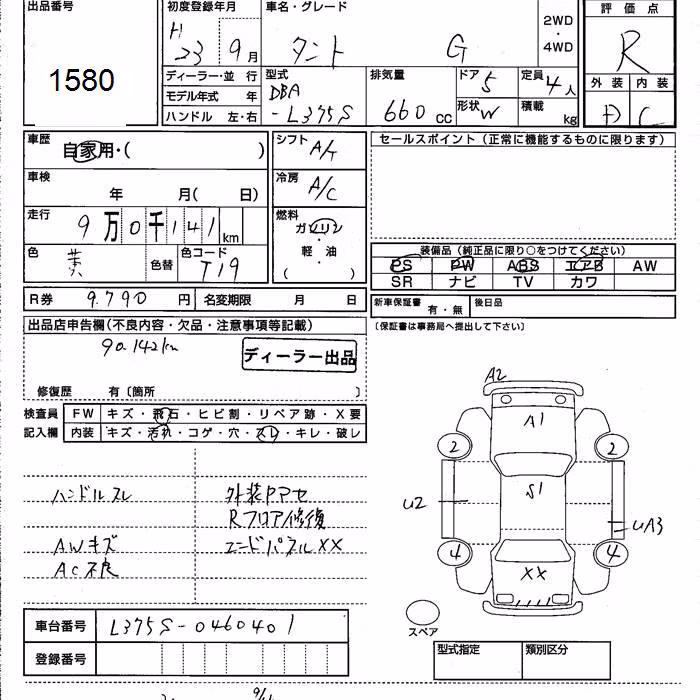 出品番号
1580
初度登録年月
H
23 9月
車名・グレード
タント G
2WD
・
4WD
評価点
R
外装 内装
D C
ディーラー・並行
モデル年式 年
ハンドル 左・右
型式
DBA
-L375S
排気量
660 cc
ドア 5
形状 W
定員 4人
積載 kg
車歴
自家用・( )
車検
年 月( 日)
走行
9万0千141km
色
黄
色替
色コード
T19
シフト
A/T
冷房
A/C
燃料
ガソリン
・
軽・油
( )
セールスポイント(正常に機能するものに限ります)
装備品(純正品に限り○をつけてください)
PS PW ABS エアB AW
SR ナビ TV カワ
R券 9,790円 名変期限 月 日
新車保証書 有・無 後日品
(保証書は事務局へ提出して下さい)
出品店申告欄(不良内容・欠品・注意事項等記載)
90.142km
ディーラー出品
修復歴 有〔箇所 〕
検査員 FW キズ・飛石・ヒビ割・リペア跡・X要
記入欄 内装 キズ・汚れ・コゲ・穴・スレ・キレ・破レ
ハンドルスレ 外装Pマセ
Rフロア修復
AWキズ エンドパネルXX
AC不良
A2
A1
2 2
S1
U2
UA3
4 4
XX
スペア
車台番号 L375S-0460401
登録番号
型式指定 類別区分